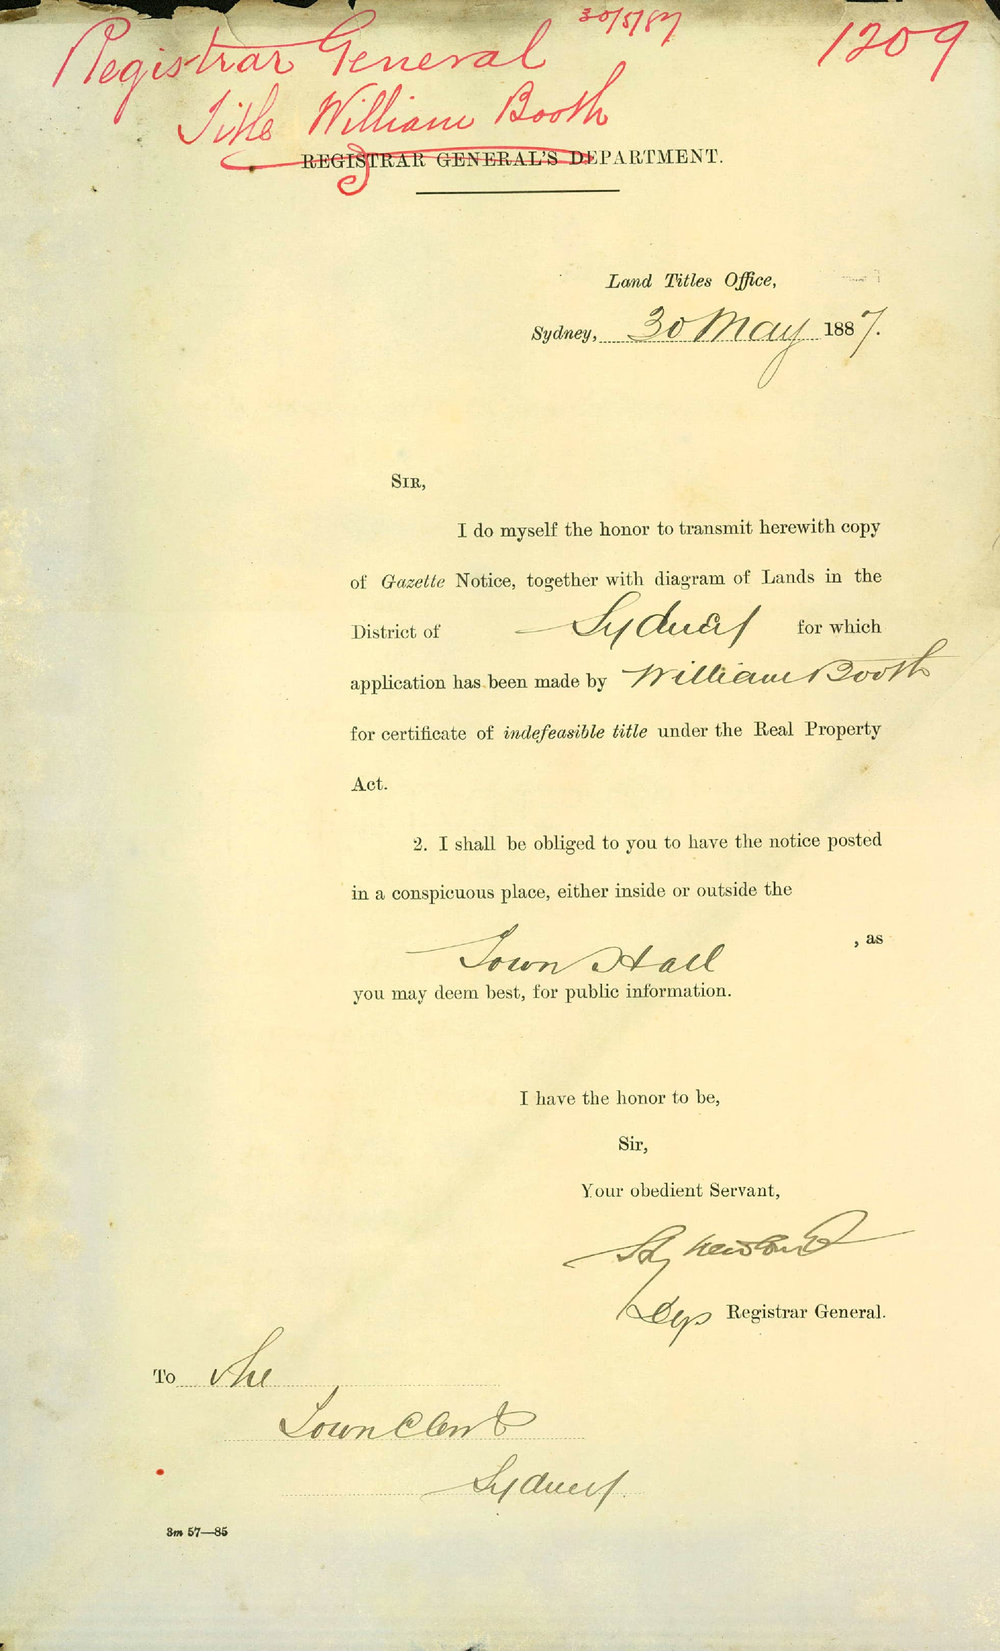 30/5/87
1209
Registrar General
Title William Booth
REGISTRAR GENERAL'S DEPARTMENT.
Land Titles Office,
Sydney, 30 May 1887.
SIR,
I do myself the honor to transmit herewith copy
of Gazette Notice, together with diagram of Lands in the
District of Sydney for which
application has been made by William Booth
for certificate of indefeasible title under the Real Property
Act.
2. I shall be obliged to you to have the notice posted
in a conspicuous place, either inside or outside the
Town Hall , as
you may deem best, for public information.
I have the honor to be,
Sir,
Your obedient Servant,
Dep Registrar General.
To the
Town Clerk
Sydney.
3m 57—85